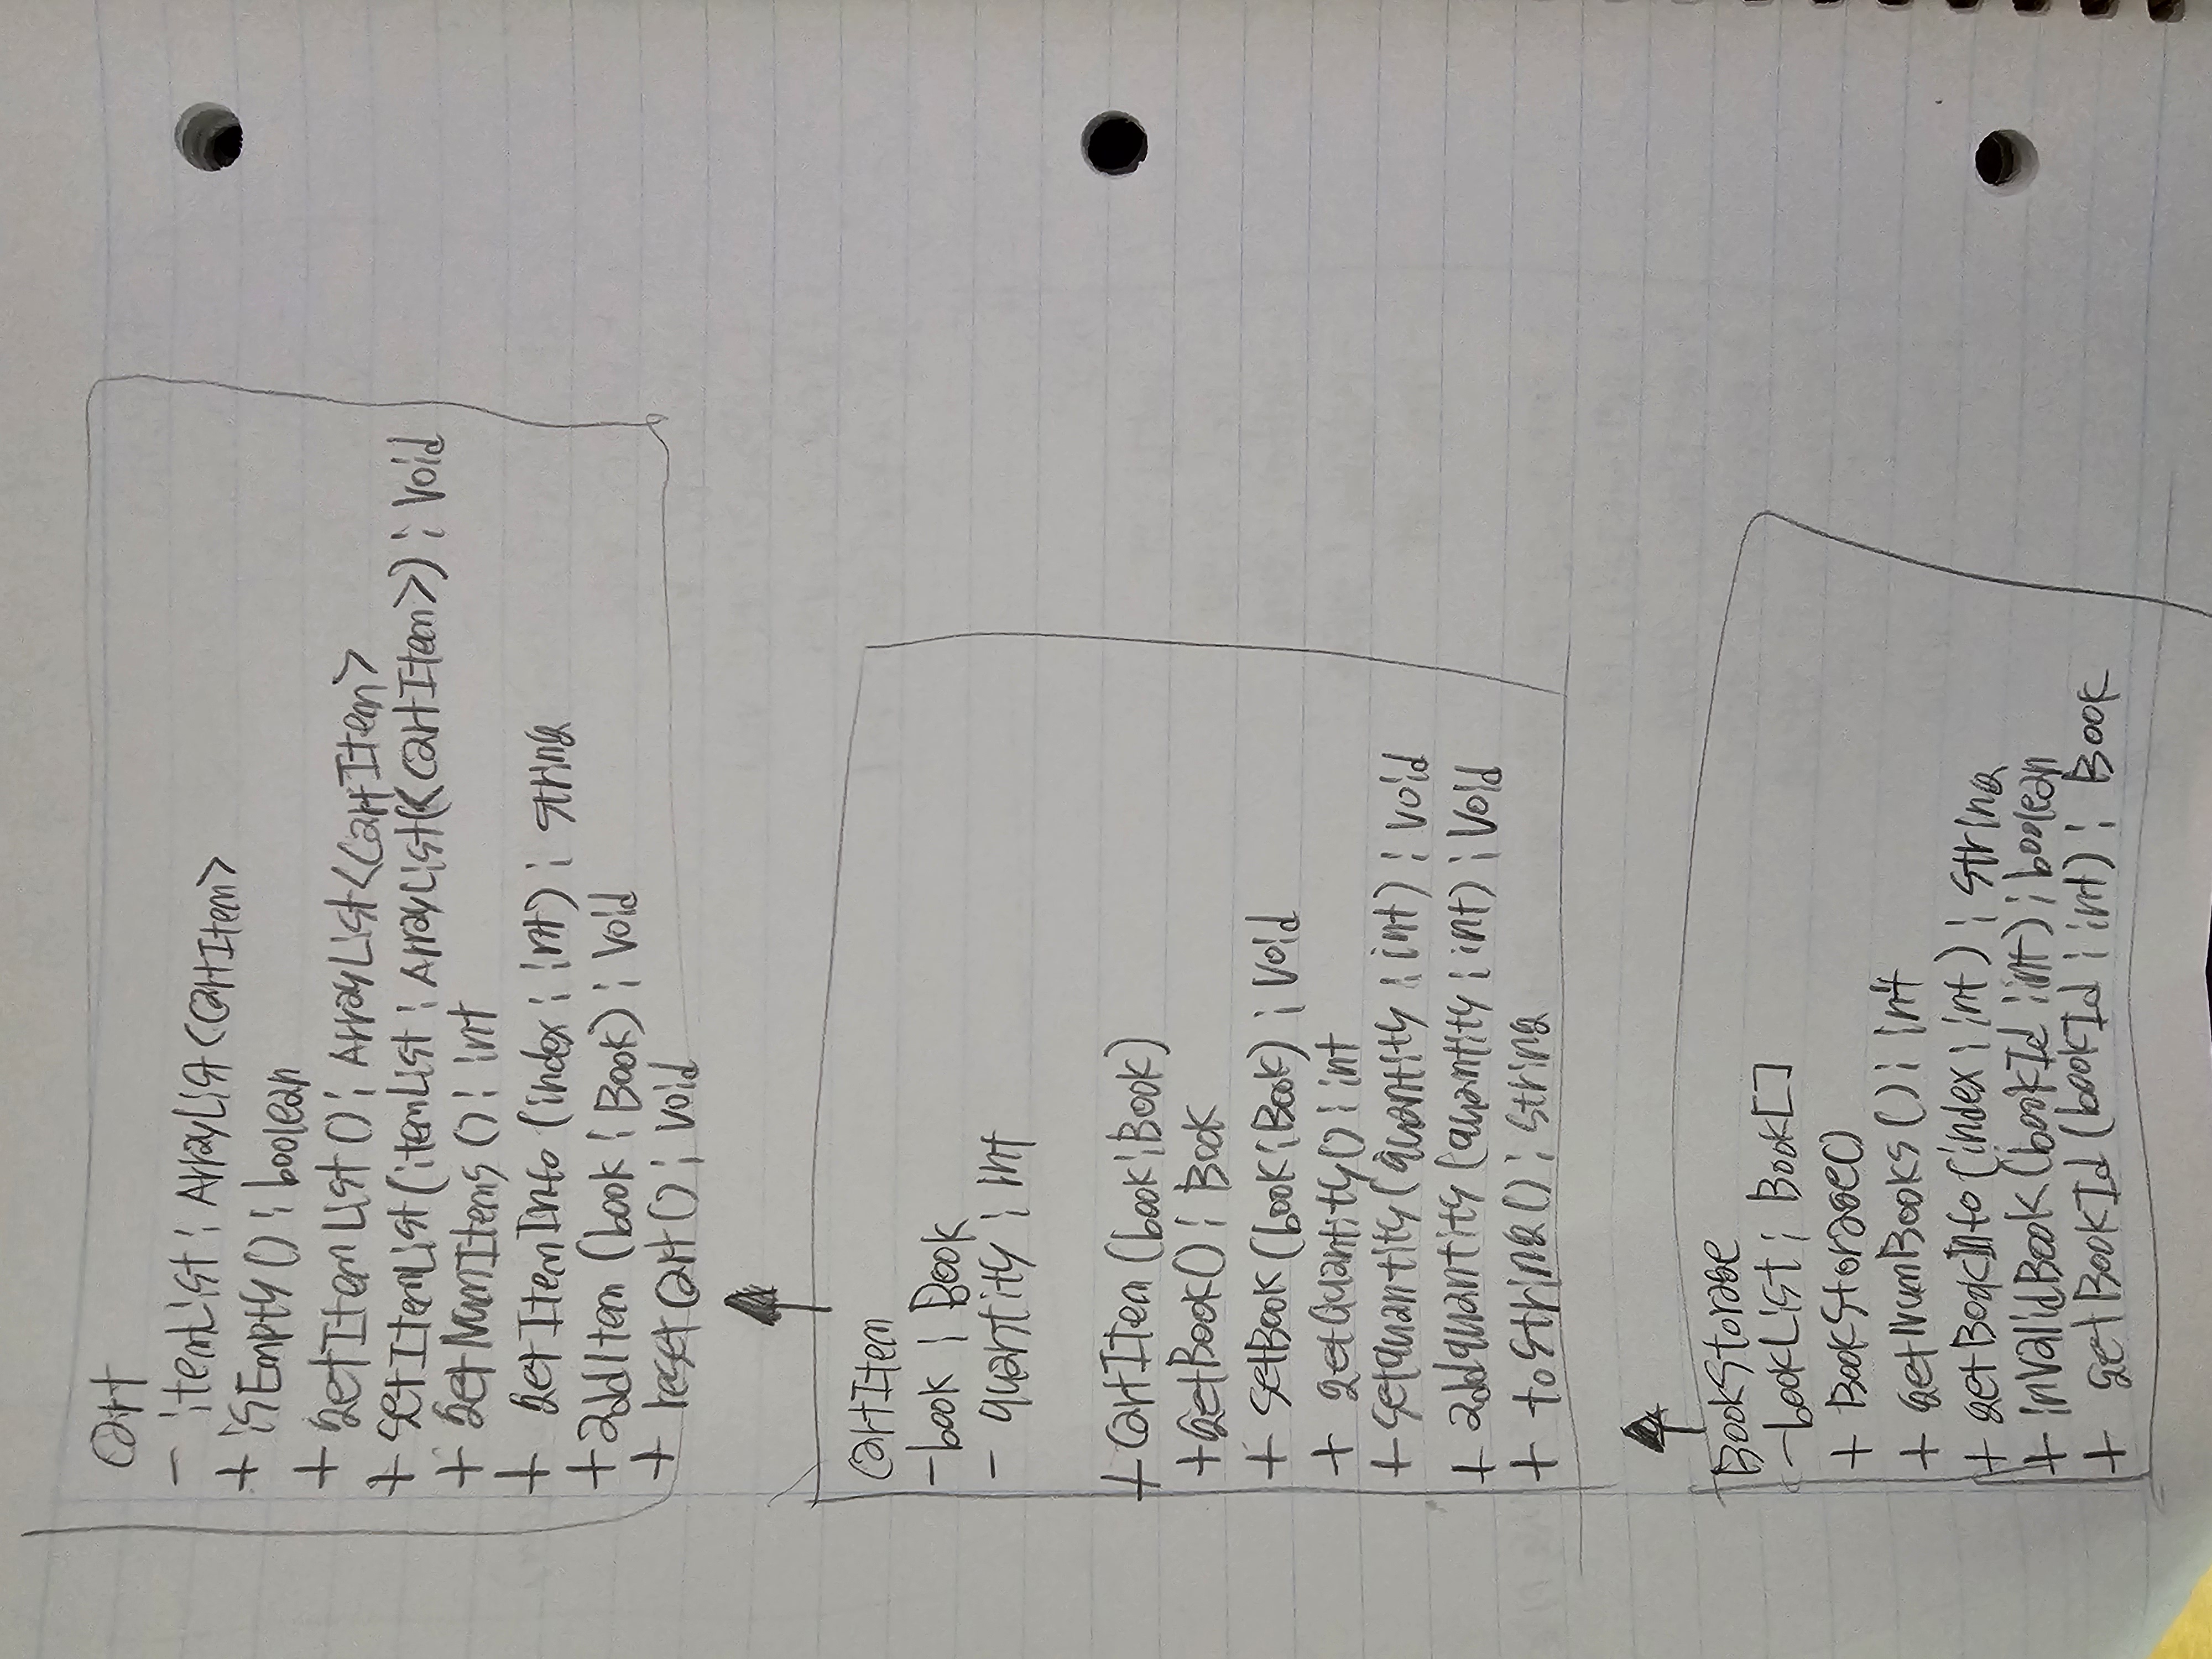 Cart
- itemList : ArrayList<CartItem>
+ isEmpty() : boolean
+ getItemList() : ArrayList<CartItem>
+ setItemList(itemList : ArrayList(<CartItem>) : void
+ getNumItems() : int
+ getItemInfo(index : int) : string
+ addItem(book : Book) : void
+ resetCart() : void
CartItem
- book : Book
- quantity : int
+ CartItem(book : Book)
+ getBook() : Book
+ setBook(book : Book) : void
+ getQuantity() : int
+ setquantity(quantity : int) : void
+ addquantity(quantity : int) : void
+ toString() : string
BookStorage
- bookList : Book[]
+ BookStorage()
+ getNumBooks() : int
+ getBookInfo(index : int) : string
+ invalidBook(bookId : int) : boolean
+ getBookId(bookId : int) : Book